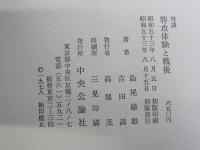 対談
特攻体験と戦後
六五〇円
昭和五十三年 八月 五日 初版印刷
昭和五十三年 八月十五日 初版発行
著者 島尾敏雄
吉田満
発行者 高梨茂
印刷所 三晃印刷
発行所 中央公論社
東京都中央区京橋二ー八ー七
電話(五六一)五九二一
振替東京二ー三四
©一九七八 検印廃止